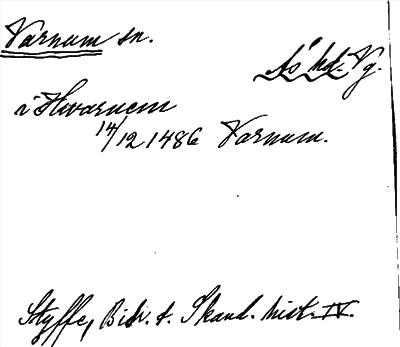 Varnum sn.
Ås hd. Vg.
i Hwarnem
14/12 1486 Varnum.
Styffe, Bidr. t. Skand. hist. IV.